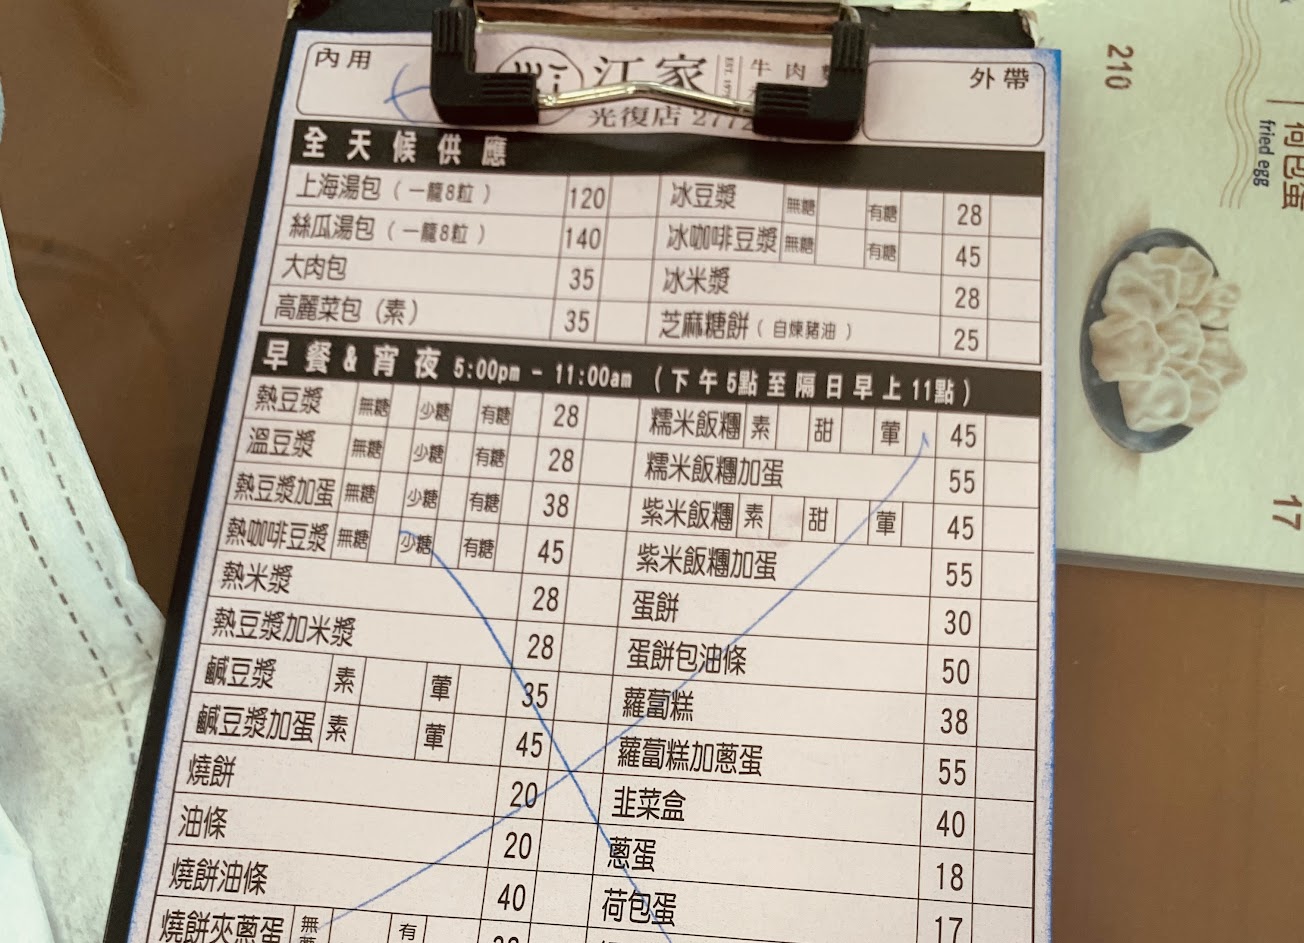 內用
江家
牛肉
外帶
光復店 277
全天候供應
上海湯包（一籠8粒） 120 冰豆漿 無糖 有糖 28
絲瓜湯包（一籠8粒） 140 冰咖啡豆漿 無糖 有糖 45
大肉包 35 冰米漿 28
高麗菜包（素） 35 芝麻糖餅（自煉豬油） 25
早餐&宵夜 5:00pm - 11:00am （下午5點至隔日早上11點）
熱豆漿 無糖 少糖 有糖 28 糯米飯糰 素 甜 葷 45
溫豆漿 無糖 少糖 有糖 28 糯米飯糰加蛋 55
熱豆漿加蛋 無糖 少糖 有糖 38 紫米飯糰 素 甜 葷 45
熱咖啡豆漿 無糖 少糖 有糖 45 紫米飯糰加蛋 55
熱米漿 28 蛋餅 30
熱豆漿加米漿 28 蛋餅包油條 50
鹹豆漿 素 葷 35 蘿蔔糕 38
鹹豆漿加蛋 素 葷 45 蘿蔔糕加蔥蛋 55
燒餅 20 韭菜盒 40
油條 20 蔥蛋 18
燒餅油條 40 荷包蛋 17
燒餅夾蔥蛋 無 有
210
荷包蛋
fried egg
17